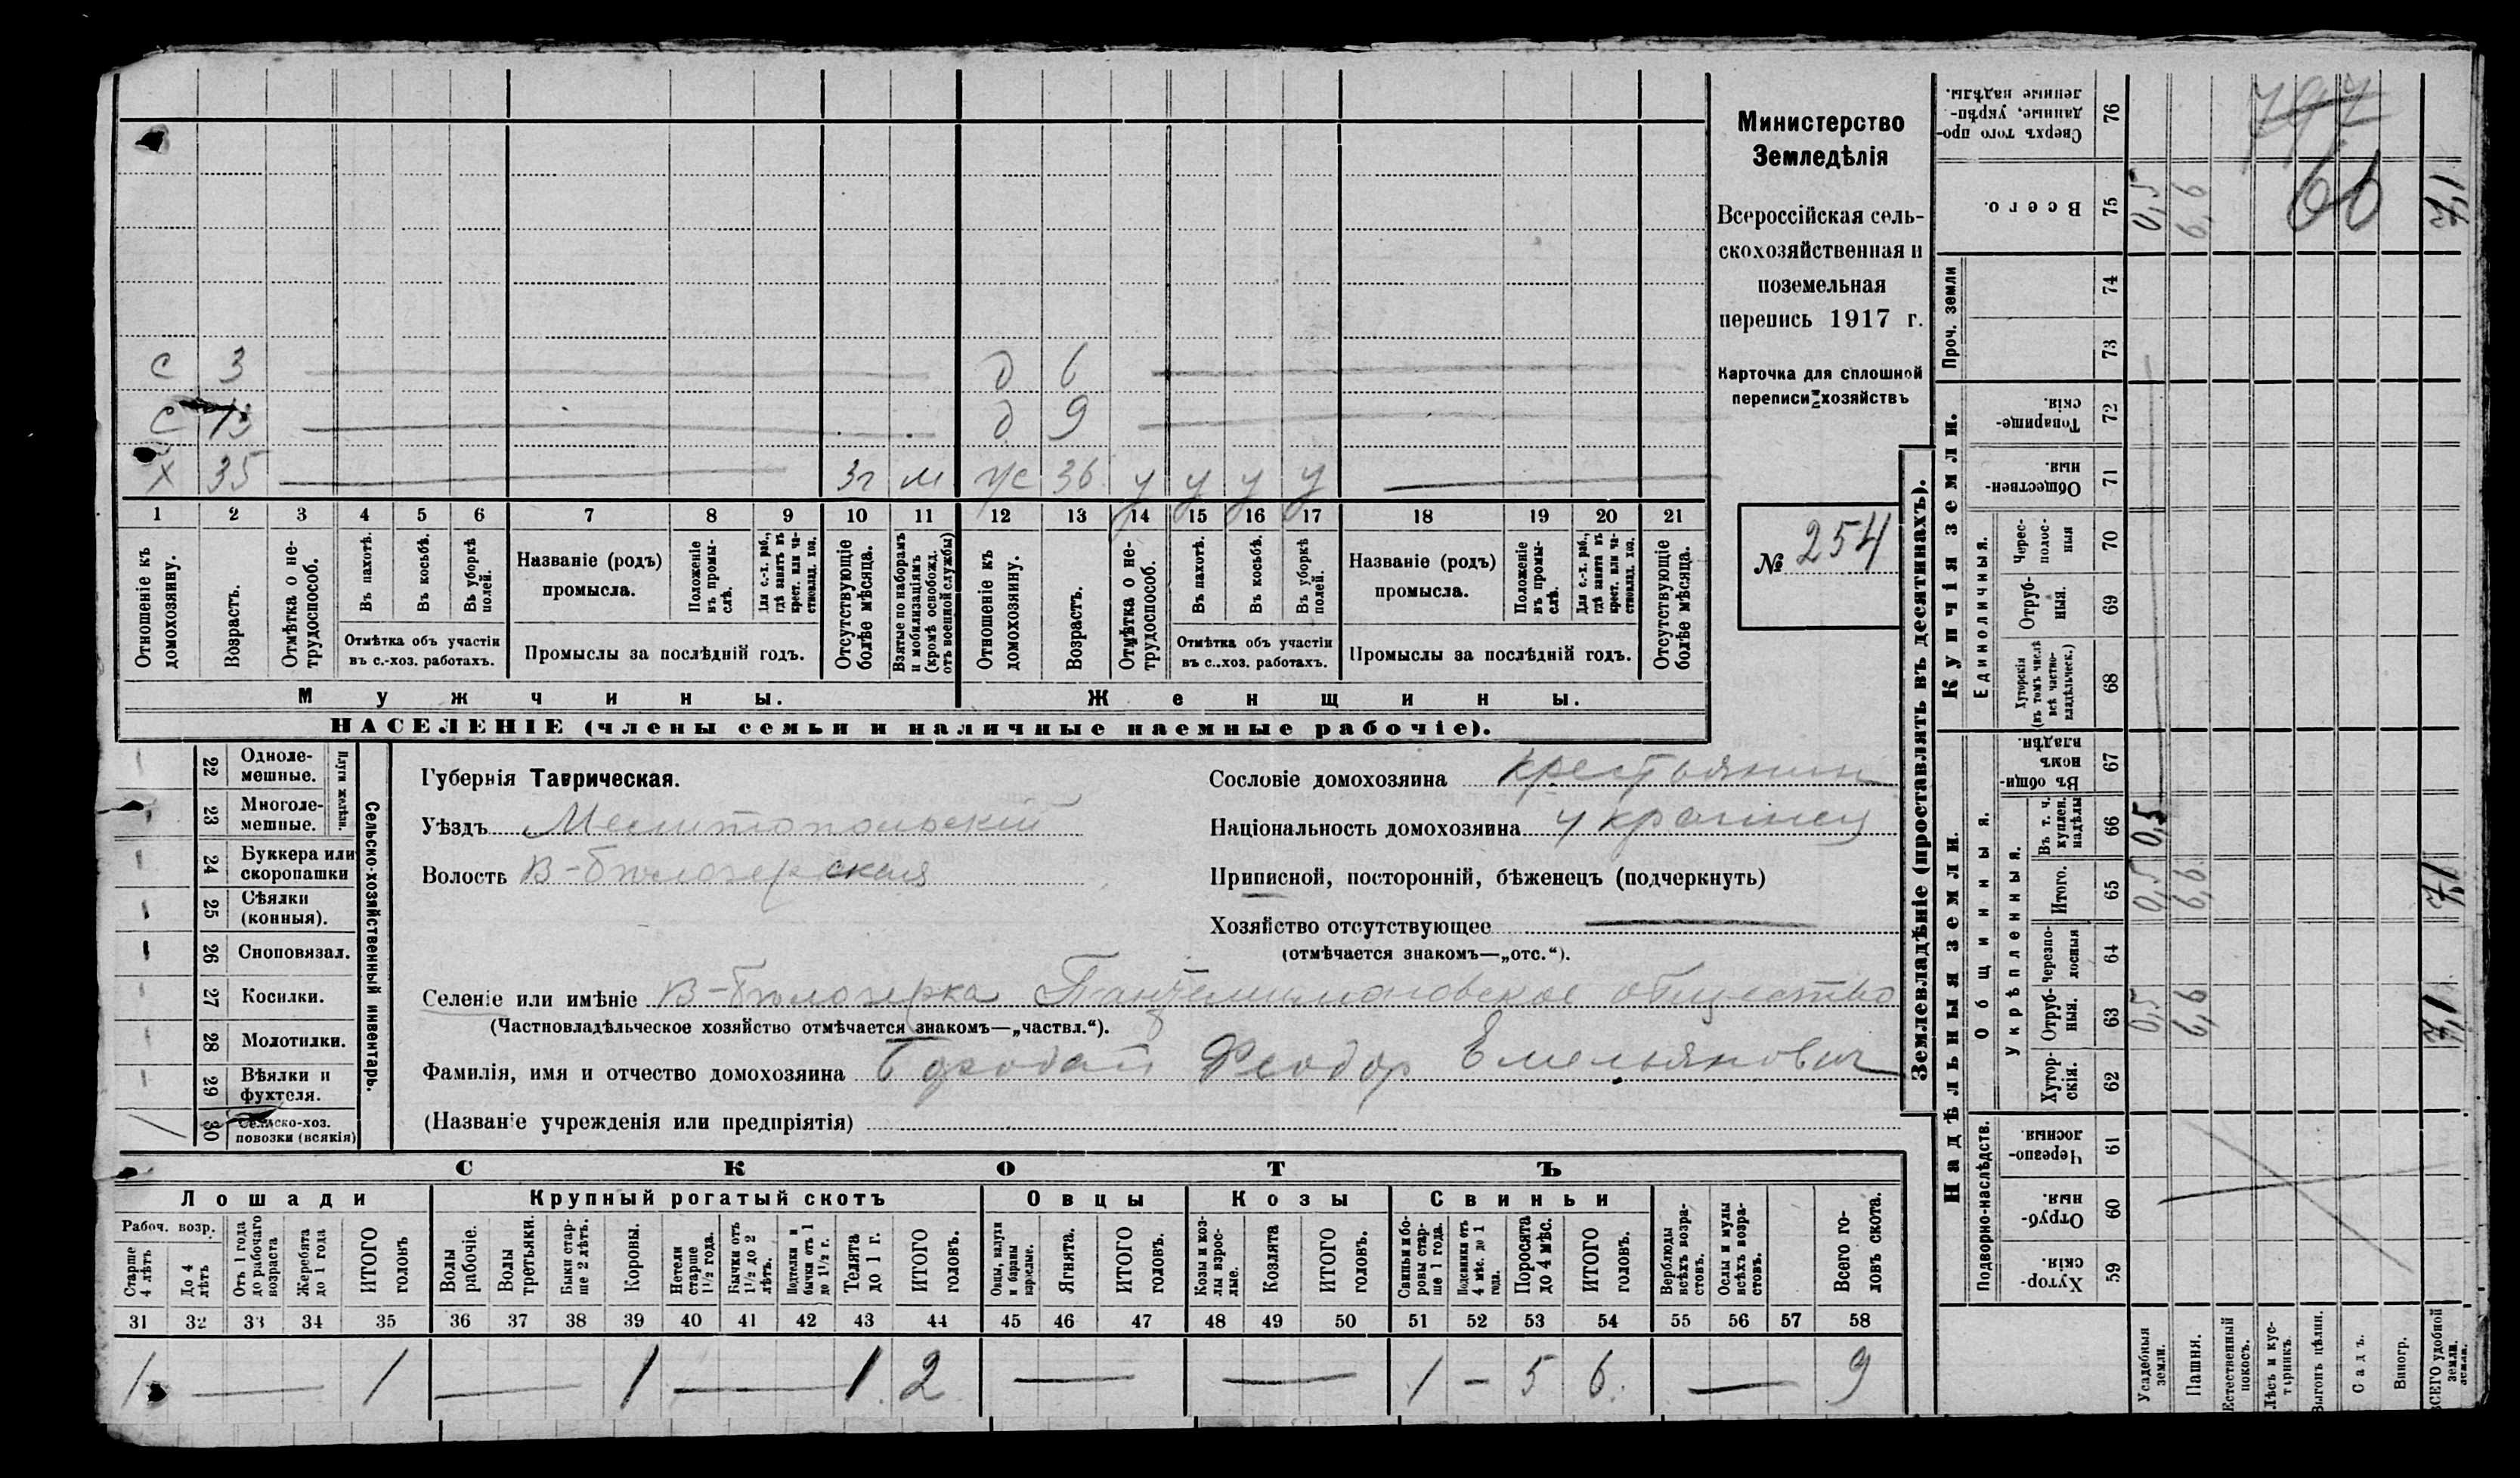 Министерство
Земледѣлія
Всероссійская сель-
скохозяйственная и
поземельная
перепись 1917 г.
Карточка для сплошной
переписи хозяйствъ
№ 254
с 3 д 6
с 13 д 9
х 35 3г м ж 36 у у у у
1 2 3 4 5 6 7 8 9 10 11 12 13 14 15 16 17 18 19 20 21
Отношеніе къ домохозяину.
Возрастъ.
Отмѣтка о не-трудоспособ.
Въ пахотѣ.
Въ косьбѣ.
Въ уборкѣ полей.
Отмѣтка объ участіи
въ с.-хоз. работахъ.
Названіе (родъ)
промысла.
Положеніе въ промы-слѣ.
Для с.-х. раб., гдѣ занятъ въ крест. или ча-стновлад. хоз.
Промыслы за послѣдній годъ.
Отсутствующіе болѣе мѣсяца.
Взятые по наборамъ и мобилизаціямъ (кромѣ освобожд. отъ военной службы)
Отношеніе къ домохозяину.
Возрастъ.
Отмѣтка о не-трудоспособ.
Въ пахотѣ.
Въ косьбѣ.
Въ уборкѣ полей.
Отмѣтка объ участіи
въ с.-хоз. работахъ.
Названіе (родъ)
промысла.
Положеніе въ промы-слѣ.
Для с.-х. раб., гдѣ занятъ въ крест. или ча-стновлад. хоз.
Промыслы за послѣдній годъ.
Отсутствующіе болѣе мѣсяца.
Мужчины. Женщины.
НАСЕЛЕНІЕ (члены семьи и наличные наемные рабочіе).
Сельско-хозяйственный инвентарь.
Плуги желѣзн.
22 Одноле-мешные.
23 Многоле-мешные.
24 Буккера или скоропашки
25 Сѣялки (конныя).
26 Сноповязал.
27 Косилки.
28 Молотилки.
29 Вѣялки и фухтеля.
30 Сельско-хоз. повозки (всякія)
Губернія Таврическая.
Уѣздъ Мелитопольскій
Волость В-бѣлозерская
Сословіе домохозяина крестьянин
Національность домохозяина украинец
Приписной, посторонній, бѣженецъ (подчеркнуть)
Хозяйство отсутствующее
(отмѣчается знакомъ—„отс.“).
Селеніе или имѣніе В-бѣлозерка Пантелимоновское общество
(Частновладѣльческое хозяйство отмѣчается знакомъ—„частвл.“).
Фамилія, имя и отчество домохозяина Феодор Емельянович
(Названіе учрежденія или предпріятія)
СКОТЪ
Лошади Крупный рогатый скотъ Овцы Козы Свиньи
Рабоч. возр.
Старше 4 лѣтъ
До 4 лѣтъ
Отъ 1 года до рабочаго возраста
Жеребята до 1 года
ИТОГО головъ
Волы рабочіе.
Волы третьяки.
Быки стар-ше 2 лѣтъ.
Коровы.
Нетели старше 1½ года.
Бычки отъ 1½ до 2 лѣтъ.
Подтелки и бычки отъ 1 до 1½ г.
Телята до 1 г.
ИТОГО головъ.
Овцы, валухи и бараны взрослые.
Ягнята.
ИТОГО головъ.
Козы и коз-лы взрос-лые.
Козлята
ИТОГО головъ.
Свиньи и бо-ровы стар-ше 1 года.
Подсвинки отъ 4 мѣс. до 1 года.
Поросята до 4 мѣс.
ИТОГО головъ.
Верблюды всѣхъ возра-стовъ.
Ослы и мулы всѣхъ возра-стовъ.
Всего го-ловъ скота.
31 32 33 34 35 36 37 38 39 40 41 42 43 44 45 46 47 48 49 50 51 52 53 54 55 56 57 58
1 — 1 — 1 — 1 2 — — 1 – 5 6 — 9
Землевладѣніе (проставлять въ десятинахъ).
Надѣльныя земли. Купчія земли. Проч. земли
Подворно-наслѣдств. Общинныя. Единоличныя.
Укрѣпленныя.
59 Хутор-скія.
60 Отруб-ныя.
61 Черезпо-лосныя.
62 Хутор-скія.
63 Отруб-ныя. 0,5 6,6
64 Черезпо-лосныя
65 Итого. 0,5 6,6 71
66 Въ т. ч. куплен. надѣлы 0,5
67 Въ общи-номъ владѣн.
68 Хуторскія (въ томъ числѣ всѣ частно-владѣльческ.)
69 Отруб-ныя.
70 Черес-полос-ныя
71 Обществен-ныя.
72 Товарище-скія.
73
74
75 Всего. 0,5 6,6 71
76 Сверхъ того про-данные, укрѣп-ленные надѣлы.
797
66
Усадебныя земли.
Пашня.
Естественный покосъ.
Лѣсъ и кус-тарникъ.
Выгонъ цѣлин.
Садъ.
Виногр.
ВСЕГО удобной земли.